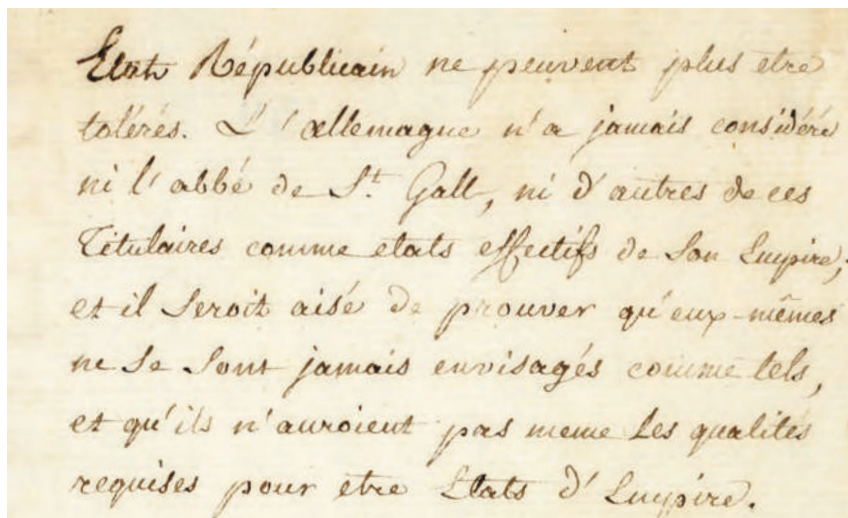 Etat Républicain ne peuvent plus etre
tolérés. L'allemagne n'a jamais considéré
ni l'abbé de St. Gall, ni d'autres de ces
Titulaires comme etats effectifs de Son Empire;
et il Seroit aisé de prouver qu'eux-mêmes
ne Se Sont jamais envisagés comme tels,
et qu'ils n'auroient pas meme les qualités
requises pour etre Etats d'Empire.